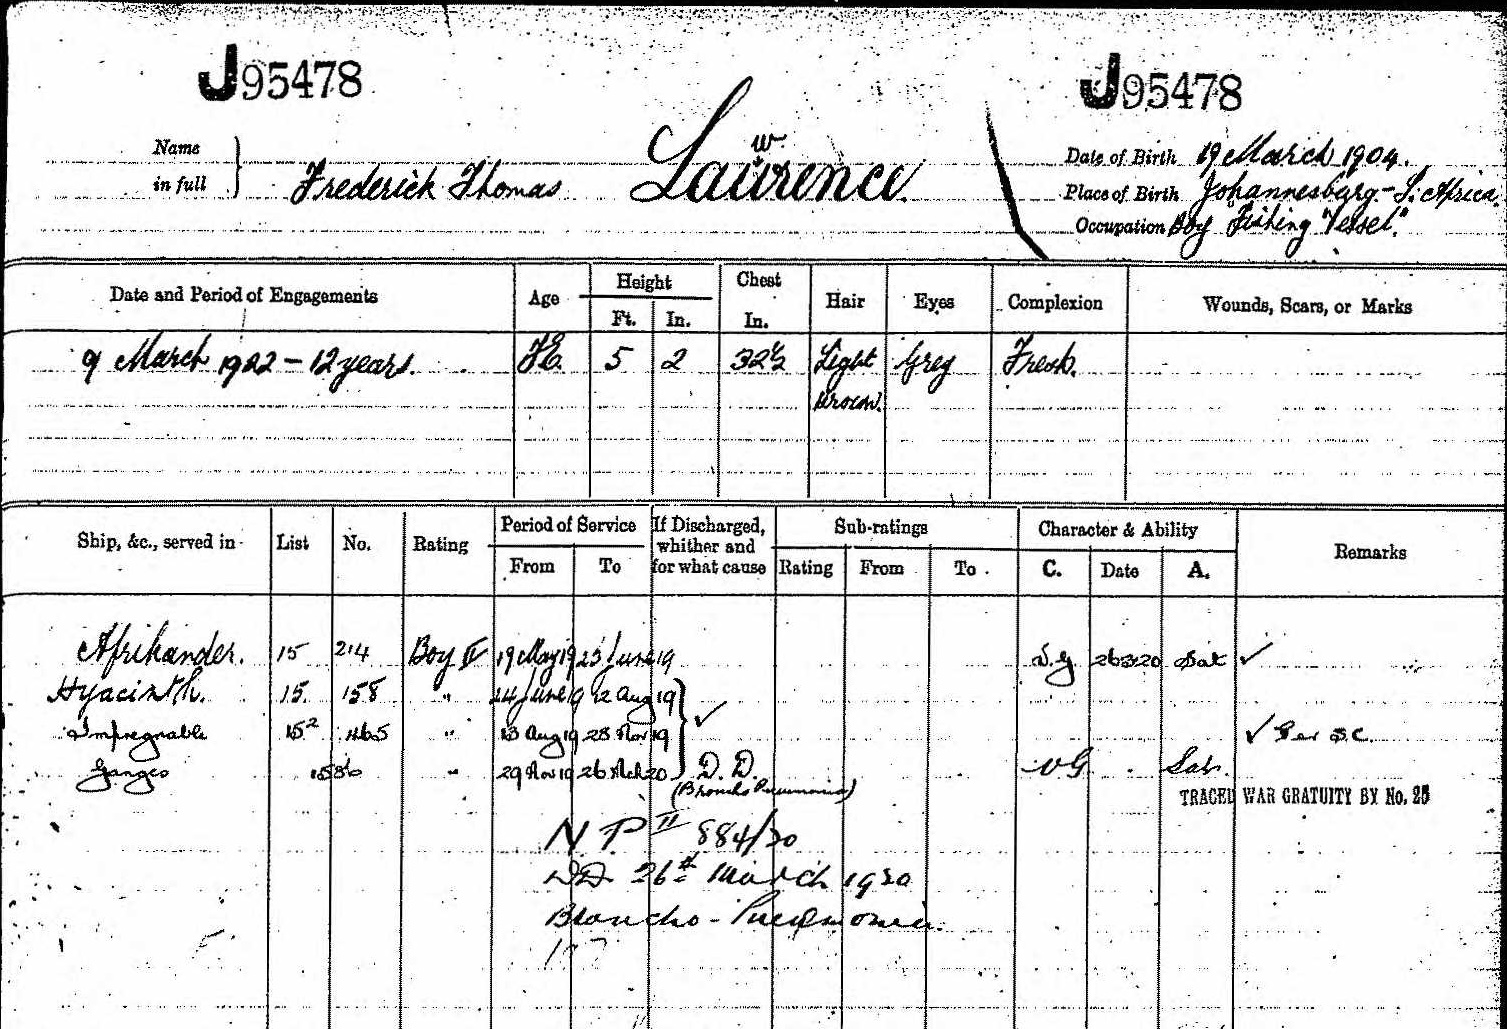 J95478 J95478
Name in full } Frederick Thomas Lawrence. w
Date of Birth 19 March 1904.
Place of Birth Johannesburg - S. Africa.
Occupation Boy Fishing Vessel.
Date and Period of Engagements Age Height Ft. In. Chest In. Hair Eyes Complexion Wounds, Scars, or Marks
9 March 1922 - 12 years. 5 2 32½ Light Brown. Grey Fresh.
Ship, &c., served in List No. Rating Period of Service From To If Discharged, whither and for what cause Sub-ratings Rating From To Character & Ability C. Date A. Remarks
Afrikander. 15 214 Boy II 19 May 19 23 June 19 V.G 26 3 20 Sat ✓
Hyacinth. 15. 158 " 24 June 19 12 Aug 19
Impregnable 15² 465 " 13 Aug 19 28 Nov 19 ✓ ✓ Per S.C.
Ganges 1586 " 29 Nov 19 26 Mch 20 D.D. VG Sat.
(Broncho Pneumonia)
TRACED WAR GRATUITY BY No. 25
N.P II 884/20
DD. 26th March 1920
Broncho-Pneumonia.